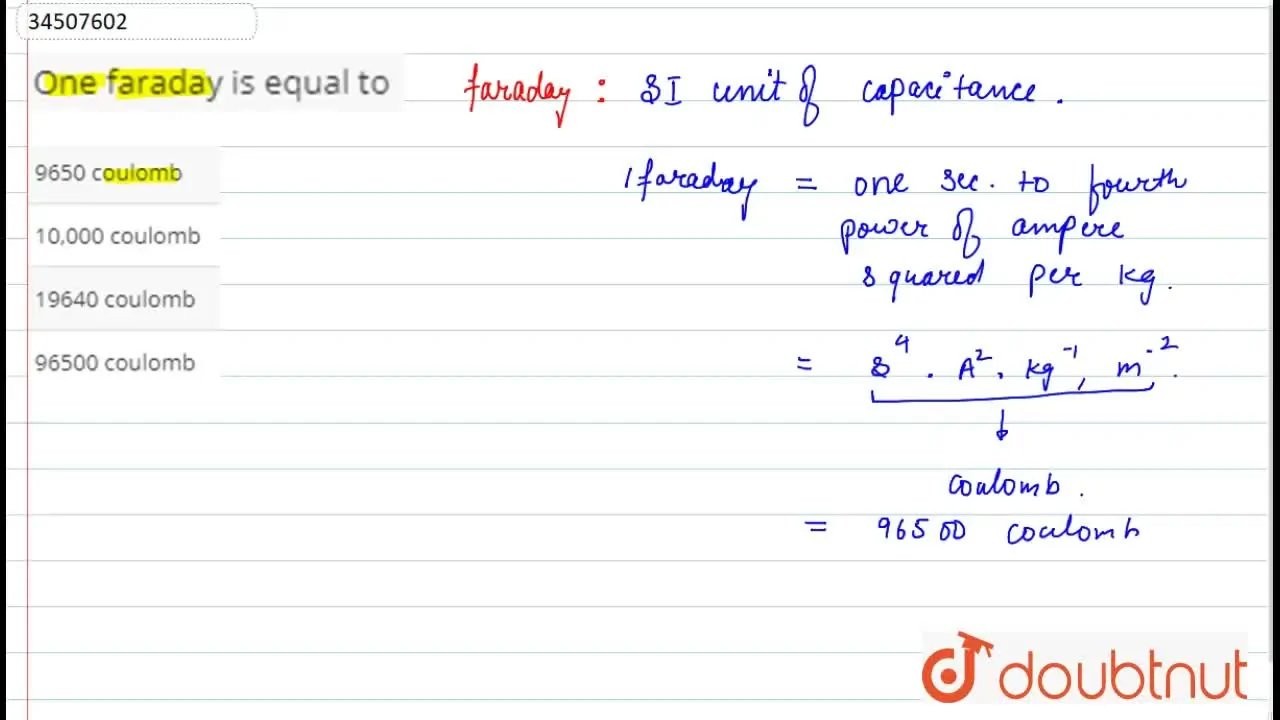 34507602
One faraday is equal to
faraday : SI unit of capacitance.
9650 coulomb
10,000 coulomb
19640 coulomb
96500 coulomb
1 faraday = one sec. to fourth
power of ampere
squared per kg.
= s⁴ . A² . kg⁻¹, m⁻² .
↓
coulomb .
= 96500 coulomb
doubtnut